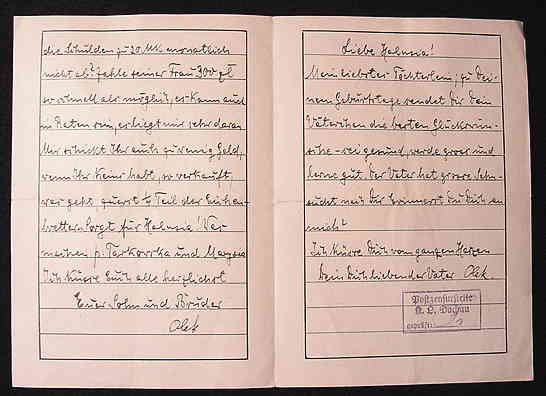 die Schulden zu 20 Mk monatlich
nicht ab? Zahle seiner Frau 300 zl
so schnell als möglich, es kann auch
in Raten sein, es liegt mir sehr daran.
Mir schickt Ihr auch zu wenig Geld,
wenn Ihr Keins habt, so verkauft,
was geht, zuerst Teil der
Sorgt für Halusia! Was
machen p. Tarkowska und
Ich küsse Euch alle herzlichst
Euer Sohn und Bruder
Olek
Liebe Halusia!
Mein liebstes Töchterlein, zu Dei-
nem Geburtstage sendet Dir Dein
Väterchen die besten Glückswün-
sche - sei gesund, werde gross und
lerne gut. Der Vater hat grosse Sehn-
sucht nach Dir. Erinnerst Du Dich an
mich?
Ich küsse Dich vom ganzen Herzen
Dein Dich liebender Vater Olek.
Postzensurstelle
K. L. Dachau
geprüft: